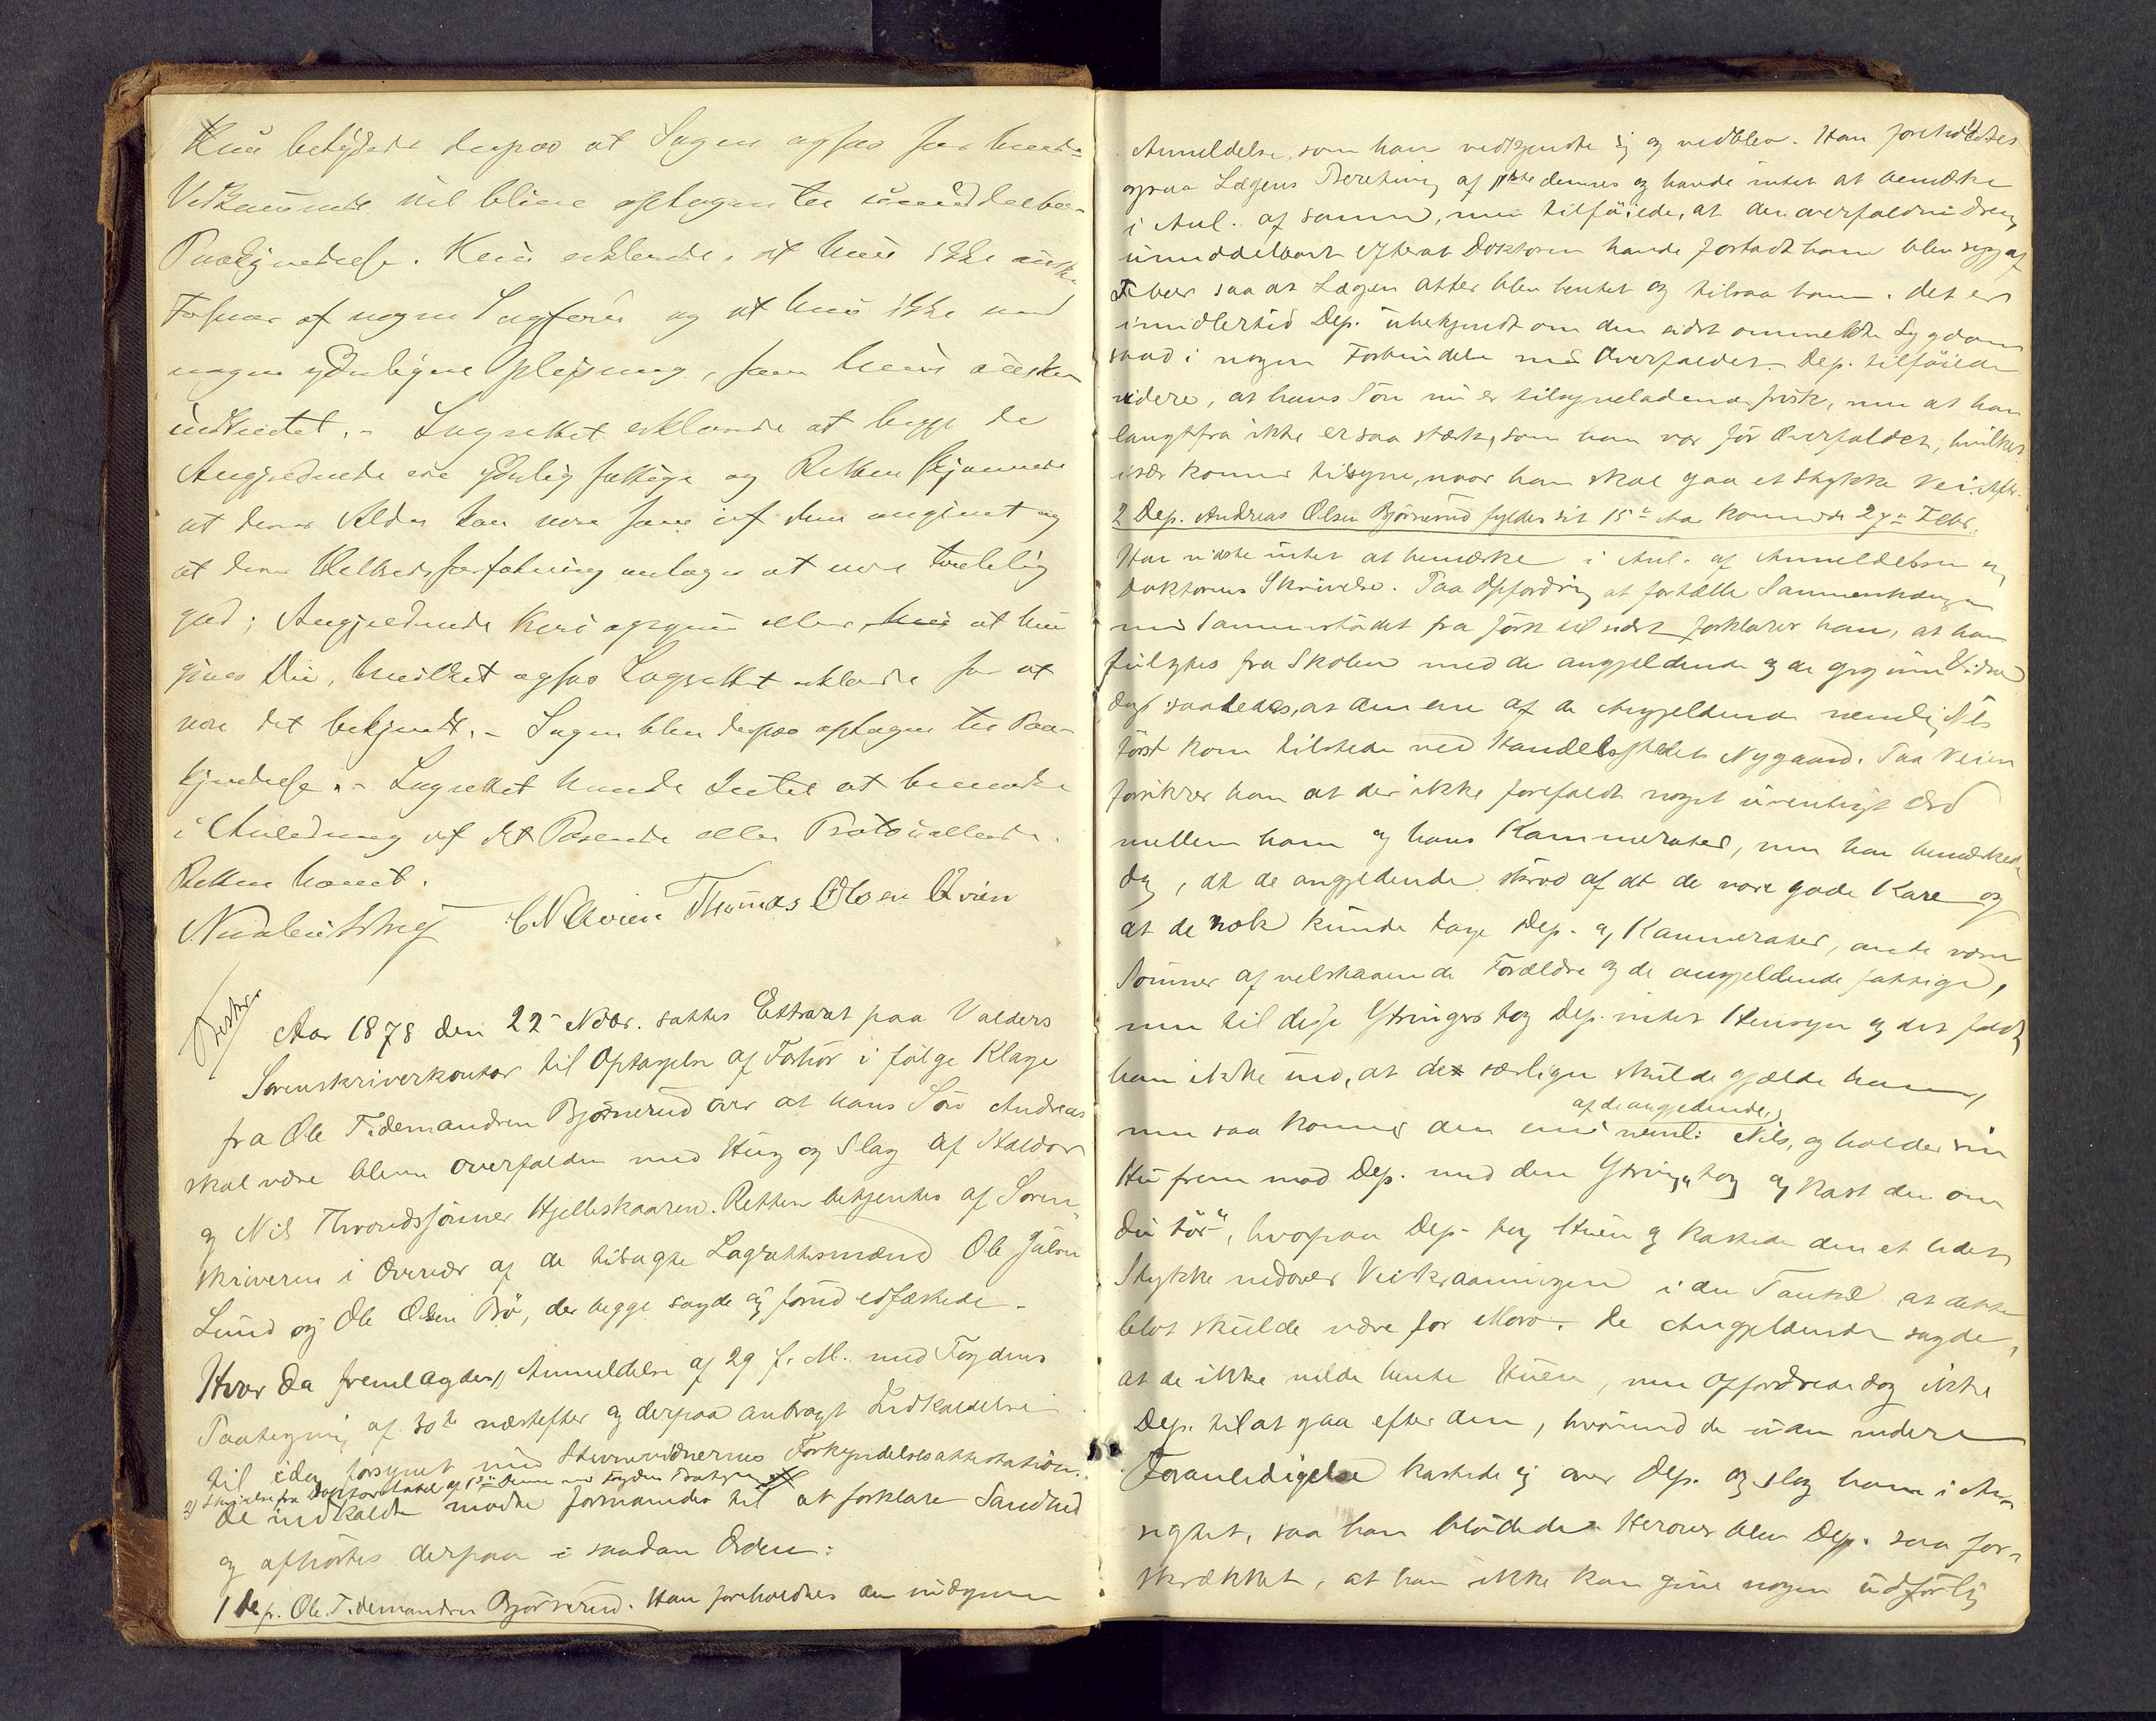 Kari betydedes derpaa at Sagen ogsaa for hendes
Vedkommende vil blive optagen til umiddelbar
Paakjendelse. Kari erklærede, at hun ikke ønsker
Forsvar af nogen Sagfører og at hun ikke ved
nogen yderligere Oplysning, som hun ønsker
indhentet. - Lagrettet erklærede at begge de
Angjeldende ere yderlig fattige og Retten skjønnede
at deres Alder kan være som af dem angivet og
at deres Helbredsforfatning antages at være temmelig
god; Angjeldende Kari opgav ellers at hun
giver Die, hvilket ogsaa Lagrettet erklærede for at
være det bekjendt. - Sagen blev derpaa optagen til Paa-
kjendelse. - Lagrettet havde Intet at bemærke
i Anledning af det Passerede eller Protokollerede.
Retten hævet.
Thomas Olsen Qvien
Aar 1878 den 22de Novbr. sattes Extraret paa Valders
Sorenskriverkontor til Optagelse af Forhør i følge Klage
fra Ole Tidemandsen Bjørnerud over at hans Søn Andreas
skal være bleven overfalden med Hug og Slag af Haldor
og Nils Throndssønner Hjelleskaaren. Retten betjentes af Soren-
skriveren i Overvær af de tilsagte Lagrettesmænd Ole Julsen
Lund og Ole Olsen Bø, der begge sagde sig forud edfæstede -
Hvor da fremlagdes 1) Anmeldelse af 29 f. M. med Fogdens
Paategning af 30te næstefter og derpaa anbragt Indkaldelse
til idag forsynet med Stevnevidnernes Forkyndelsesattestation.
2) Skrivelse fra Doktor af 1ste Denne med Fogdens Paategn.
De indkaldte mødte formanedes til at forklare Sandhed
og afhørtes derpaa i saadan Orden:
1 Dep. Ole Tidemandsen Bjørnerud. Han foreholdtes den indgivne
Anmeldelse, som han vedkjendte sig og vedblev. Han foreholdtes
ogsaa Lægens Beretning af 1ste dennes og havde intet at bemærke
i Anl. af samme, men tilføiede, at den overfaldne Dreng
umiddelbart efterat Doktoren havde forladt ham blev syg af
Feber saa at Lægen atter blev hentet og tilsaa ham. Det er
imidlertid Dep. ubekjendt om den sidst ommeldte Sygdom
staad i nogen Forbindelse med Overfaldet. Dep. tilføiede
videre, at hans Søn nu er tilsyneladende frisk, men at han
langtfra ikke er saa stærk, som han var før Overfaldet, hvilket
især kommer tilsyne, naar han skal gaa et Stykke Vei. Aftr.
2 Dep. Andreas Olsen Bjørnerud fylder sit 15de Aar kommende 27de Febr.
Han vidste intet at bemærke i Anl. af Anmeldelsen og
Doktorens Skrivelse. Paa Opfordring at fortælle Sammenhængen
med Sammenstødet fra først til sidst forklarer han, at han
fulgtes fra Skolen med de angjeldende og de grg. mine Vidner
dog saaledes, at den ene af de Angjeldende nemlig Nils
først kom tilstede ved Handelsstedet Nygaard. Paa Veien
forsikrer han at der ikke forefaldt noget uvenligt Ord
mellem ham og hans Kammerater, men han bemærkede
dog, at de angjeldende skrød af at de vare gode Kare og
at de nok kunde tage Dep. og Kammerater, andre være
Sønner af velstaaende Forældre og de angjeldende fattige,
men til disse Ytringer tog Dep. intet Hensyn og det faldt
ham ikke ind, at det særligen skulde gjælde ham,
af de angjeldende,
men saa kommer den ene neml: Nils, og holder sin
Hue frem mod Dep. med den Ytring "tag og kast den om
du tør", hvorpaa Dep. tog Huen og kastede den et lidet
Stykke nedover Veiskraaningen i den Tanke at dette
blot skulde være for Moro. De Angjeldende sagde,
at de ikke vilde hente Huen, men opfordrede dog ikke
Dep. til at gaa efter den, hvorimod de uden videre
Foranledigelse kastede sig over Dep. og slog ham i An-
sigtet, saa han blødede. Herover blev Dep. saa for-
skrækket, at han ikke kan give nogen udførlig